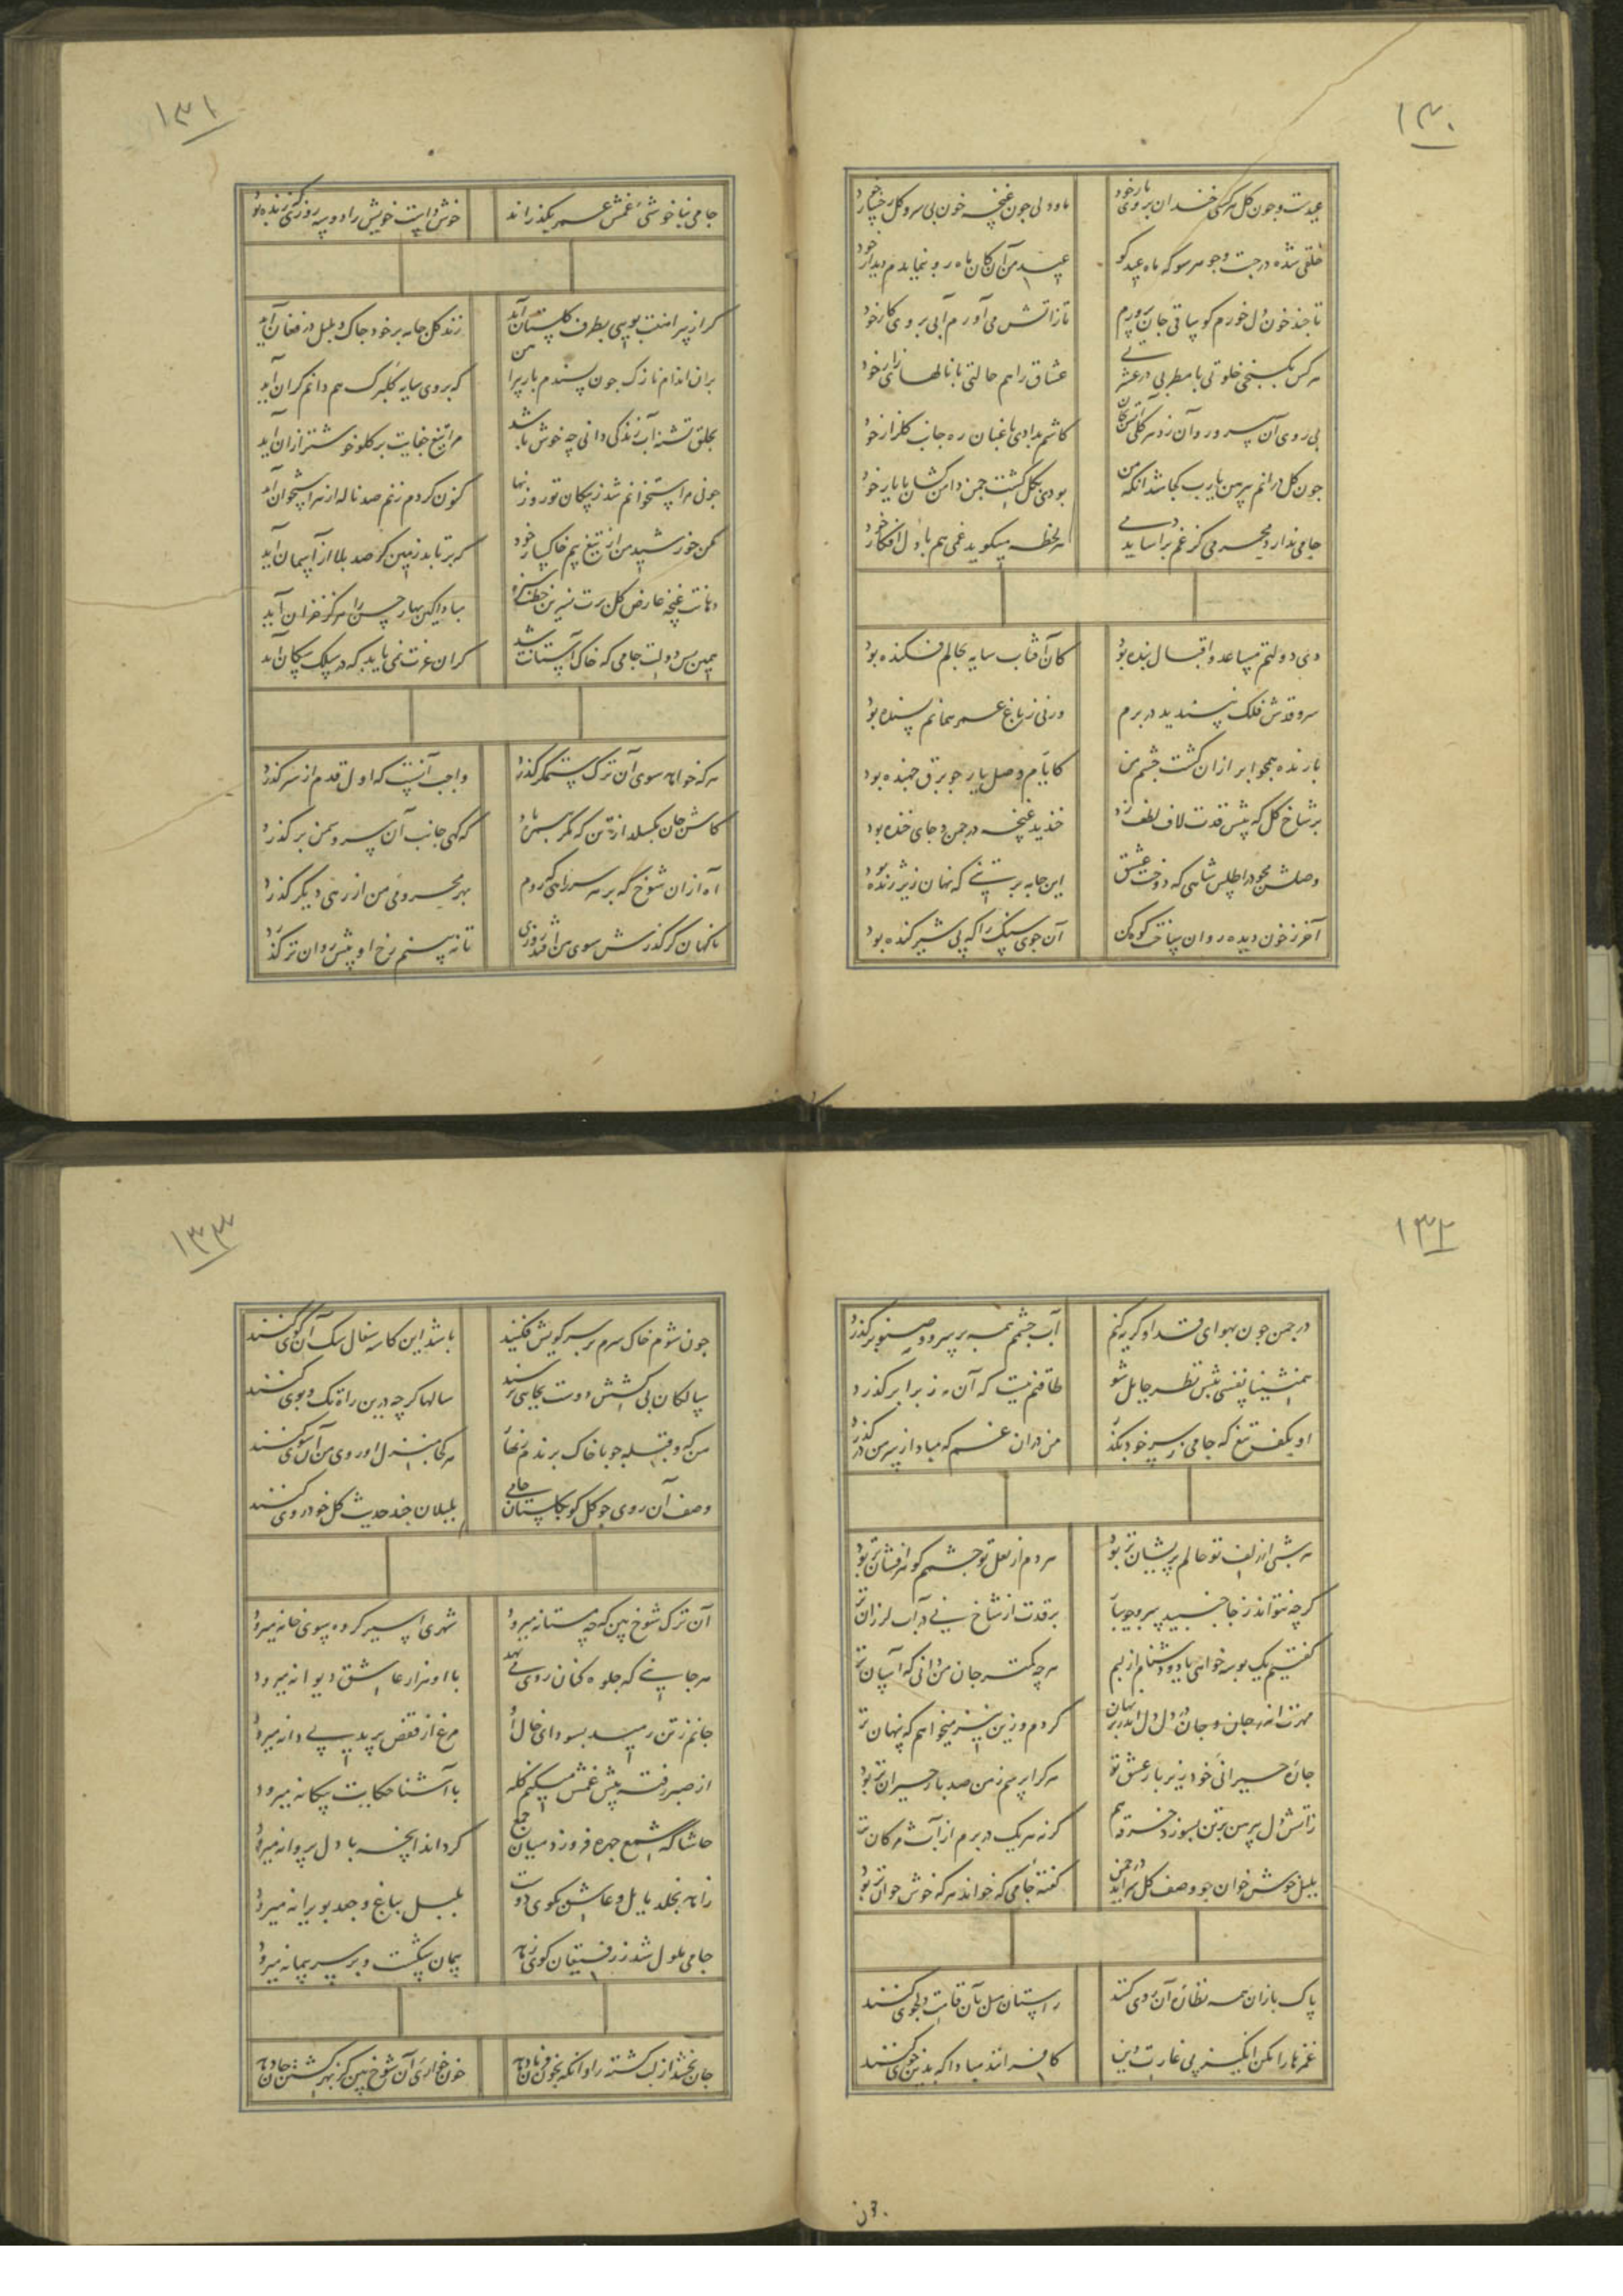 ۱۳۰
عیدست و چون گل هر کسی خندان بروی یار خود
ما و دلی چون غنچه خون بی سرو گل رخسار خود
خلقی شده در جست و جو هر سو که ماه عید کو
عید من آن کان ماه رو بنمایدم دیدار خود
تا چند خون دل خورم کو ساقی جان پرورم
تا ز آتش می آورم آبی بروی کار خود
هر کس بکنجی خلوتی با مطربی در عشرتی
عشاق را هم حالتی با نالهای زار خود
بی روی آن سرو روان زد هر گلی
کاشم ندادی باغبان ره جانب گلزار خود
چون گل درانم پیرهن یارب کجا شد آنکه من
بودی بگل گشت چمن دامن کشان با یار خود
جامی ندارد محرمی کز غم برآساید دمی
هر لحظه میگوید غمی هم با دل افکار خود
دی دولتم مساعد و اقبال بنده بود
کان آفتاب سایه بحالم فکنده بود
سرو قدش فلک نپسندید در برم
ورنی ز باغ عمر همانم بسنده بود
بارنده همچو ابر ازان گشت چشم من
کایام وصل یار چو برق جهنده بود
بر شاخ گل که پیش قدت لاف لطف زد
خندید غنچه در چمن و جای خنده بود
وصلش مجو در اطلس شاهی که دوخت عشق
این جامه بر تنی که نهان زیر ژنده بود
آخر ز خون دیده روان ساخت کوهکن
آن جوی سنگ را که پی شیر کنده بود
۱۳۱
جامی بناخوشی غمش عمر بگذراند
خوش داشت خویش را دو سه روزی که زنده بود
گر از پیراهنت بویی بطرف گلستان آید
زند گل جامه بر خود چاک و بلبل در فغان آید
بران اندام نازک چون پسندم بار پیراهن
که بر وی سایه گلبرگ هم دانم گران آید
بحلق تشنه آب زندگی دانی چه خوش باشد
مرا تیغ جفایت بر گلو خوشتر ازان آید
چو نی مر استخوانم شد ز پیکان تو روزنها
کنون گر دم زنم صد ناله از هر استخوان آید
مکن خورشید من از تیغ بیم خاکسار خود
گر برتابد زمین گر صد بلا از آسمان آید
دهانت غنچه عارض گل برت نسرین خطت سبزه
مبادا کین بهار حسن را هرگز خزان آید
همین بس دولت جامی که خاک آستانت شد
گر آن عزت نمی یابد که در سلک سگان آید
هر که خواهد سوی آن ترک ستمگر گذرد
واجب آنست که اول قدم از سر گذرد
کاش جان بگسلد از تن که مگر
که گهی جانب آن سرو سمن بر گذرد
آه ازان شوخ که بر هر سر راهی که روم
بهر محرومی من از رهی دیگر گذرد
ناگهان گر گذرش سوی من افتد روزی
تا نه بینم رخ او پیش روان تر گذرد
۱۳۲
در چمن چون بهوای قد او گریه کنم
آب چشمم همه بر سرو و صنوبر گذرد
همنشینا نفسی پیش نظر حایل شو
طاقتم نیست که آن مه ز برابر گذرد
او بکف تیغ که جامی ز سر خود بگذر
من دران غم که مبادا ز سر من در گذرد
هر شبی از زلف تو حالم پریشان تر بود
هر دم از لعل تو چشمم گوهر افشان تر بود
گرچه نتواند ز جا جنبید سرو جویبار
بر قدت از شاخ نی در آب لرزان تر
گفتیم یک بوسه خواهی یا دو دشنام از لبم
هر چه کمتر جان من دانی که آسان تر
مهرت اندر جان و جان در دل دل اندر بر نهان
کردم و زین نیز میخواهم که پنهان تر
چاره حیرانی خود زیر بار عشق تو
هر کرا پرسم ز من صد بار حیران تر بود
ز آتش دل پیرهن بر تن بسوزد خرقه هم
گرنه هر یک در برم از آب مژگان تر
بلبل خوش خوان چو وصف گل سراید در چمن
گفته جامی که خواند هر که خوش خوان تر بود
پاک بازان همه نظاره آن روی کنند
راستان میل بآن قامت دلجوی کنند
غمزها را مکن انگیز پی غارت دین
کافرانند مبادا که بدین خوی کنند
ن ۳۰
۱۳۳
چون شوم خاک سرم بر سر کویش فکنید
باشد این کاسه سفال سگ آن کوی کنند
سالکان بی کشش دوست بجایی نرسند
سالها گرچه درین راه تک و پوی کنند
من که و قبله چو با خاک برندم زینجا
هر کجا منزل او روی من آن سوی کنند
وصف آن روی چو گل گو بگلستان جامی
بلبلان چند حدیث گل خودروی کنند
آن ترک شوخ بین که چه مستانه میرود
شهری اسیر کرده بسوی خانه میرود
هر جا پنی که جلوه کنان روی می نهد
با او هزار عاشق دیوانه میرود
جانم ز تن رمید بسودای خال او
مرغ از قفس پرید پی دانه میرود
از صبر رفته پیش غمش میکنم گله
با آشنا حکایت بیگانه میرود
حاشا که شمع چهره فروزد میان جمع
گر داند آنچه با دل پروانه میرود
زاهد بخلد مایل و عاشق بکوی دوست
بلبل بباغ و جغد بویرانه میرود
جامی ملول شد ز رفیقان کوی زهد
پیمان شکست و بر سر پیمانه میرود
جان بخشد از لب کشته را وانگه بخون فرمان دهد
خون خواری آن شوخ بین کز بهر کشتن جان دهد